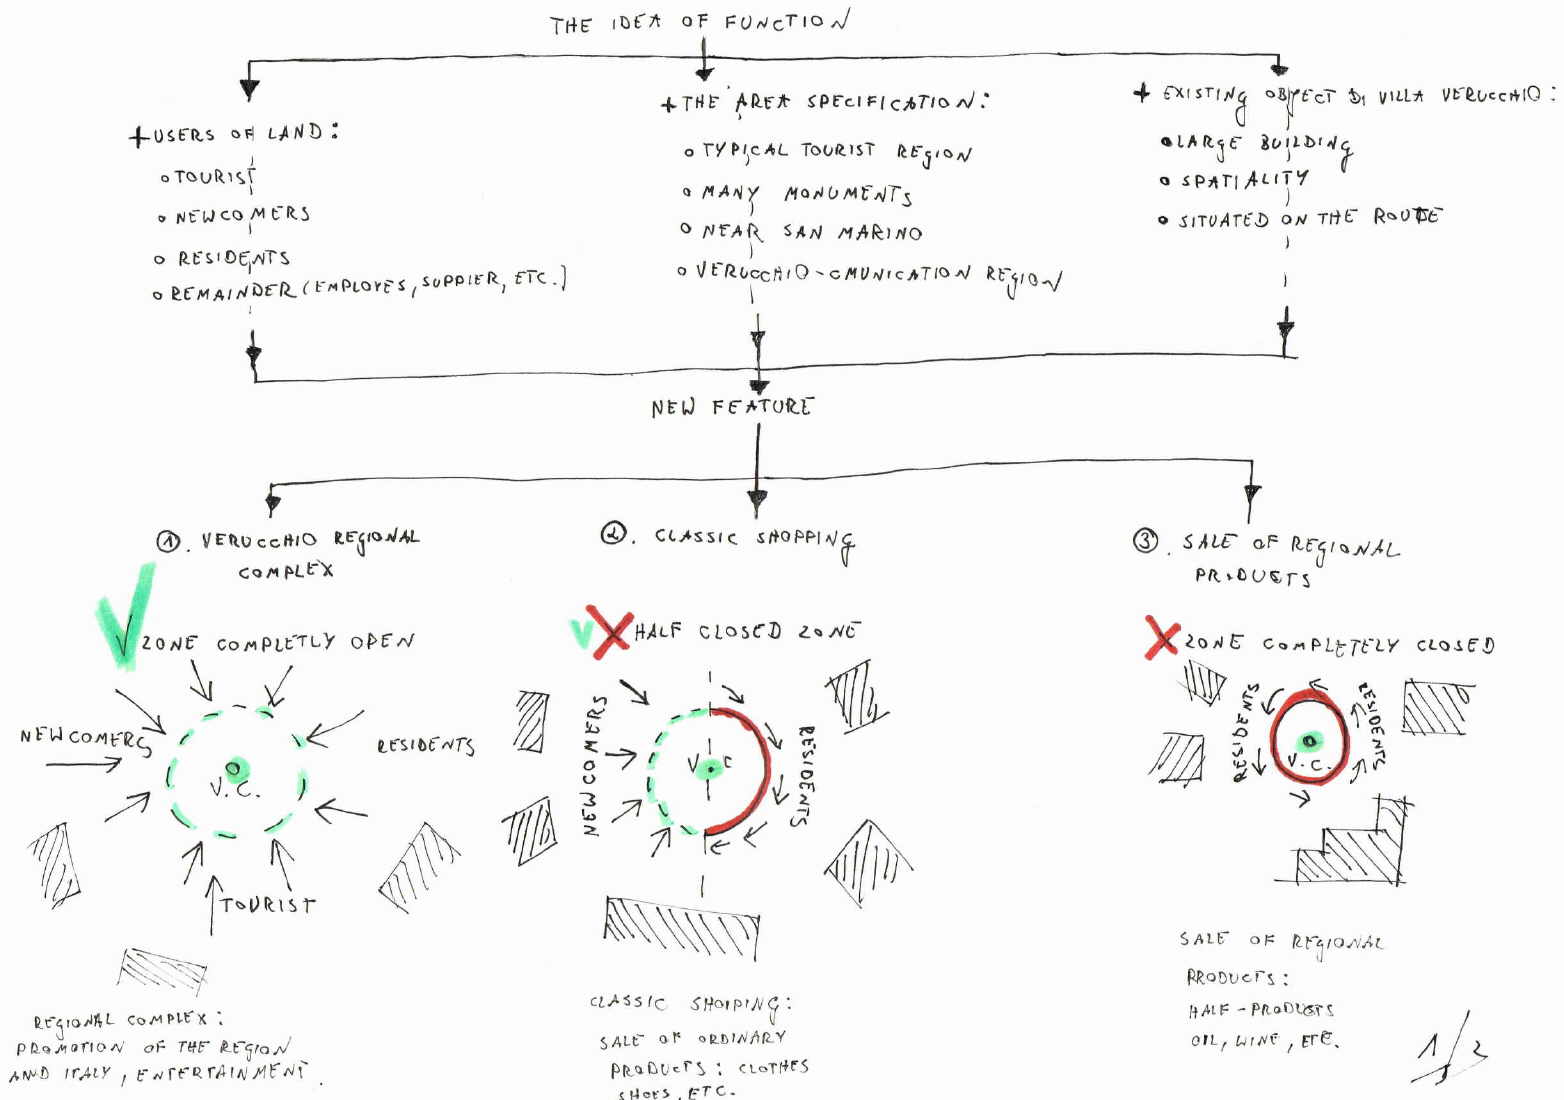 THE IDEA OF FUNCTION
+ USERS OF LAND:
o TOURIST
o NEWCOMERS
o RESIDENTS
o REMAINDER (EMPLOYES, SUPPIER, ETC.)
+ THE AREA SPECIFICATION:
o TYPICAL TOURIST REGION
o MANY MONUMENTS
o NEAR SAN MARINO
o VERUCCHIO-CMUNICATION REGION
+ EXISTING OBJECT DI VILLA VERUCCHIO:
o LARGE BUILDING
o SPATIALITY
o SITUATED ON THE ROUTE
NEW FEATURE
1. VERUCCHIO REGIONAL
COMPLEX
ZONE COMPLETLY OPEN
NEWCOMERS
RESIDENTS
V.C.
TOURIST
REGIONAL COMPLEX:
PROMOTION OF THE REGION
AND ITALY, ENTERTAINMENT.
2. CLASSIC SHOPPING
V X HALF CLOSED ZONE
NEWCOMERS
V C
RESIDENTS
CLASSIC SHOPPING:
SALE OF ORDINARY
PRODUCTS: CLOTHES
SHOES, ETC.
3. SALE OF REGIONAL
PRODUCTS
X ZONE COMPLETELY CLOSED
RESIDENTS
RESIDENTS
V.C.
SALE OF REGIONAL
PRODUCTS:
HALF-PRODUCTS
OIL, WINE, ETC.